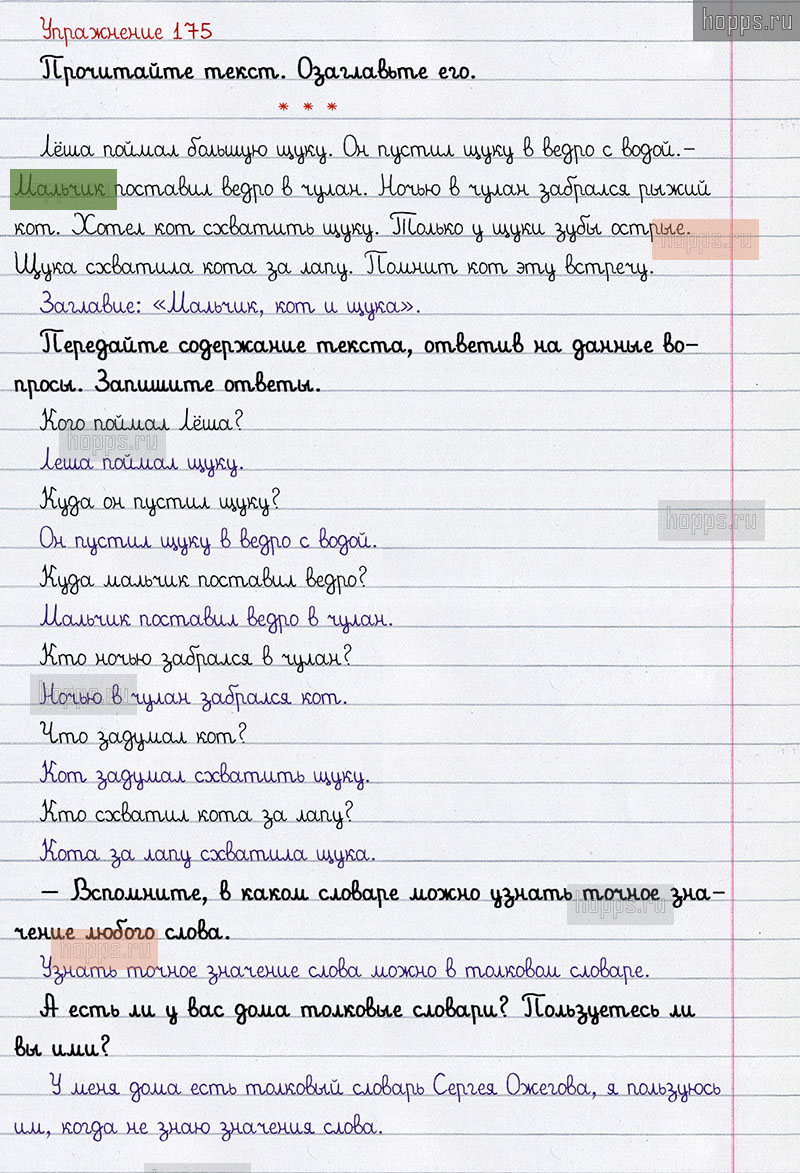 hopps.ru
Упражнение 175
Прочитайте текст. Озаглавьте его.
* * *
Лёша поймал большую щуку. Он пустил щуку в ведро с водой.-
Мальчик поставил ведро в чулан. Ночью в чулан забрался рыжий
кот. Хотел кот схватить щуку. Только у щуки зубы острые.
hopps.ru
Щука схватила кота за лапу. Помнит кот эту встречу.
Заглавие: «Мальчик, кот и щука».
Передайте содержание текста, ответив на данные во-
просы. Запишите ответы.
Кого поймал Лёша?
hopps.ru
Леша поймал щуку.
Куда он пустил щуку?
hopps.ru
Он пустил щуку в ведро с водой.
Куда мальчик поставил ведро?
Мальчик поставил ведро в чулан.
Кто ночью забрался в чулан?
Ночью в чулан забрался кот.
hopps.ru
Что задумал кот?
Кот задумал схватить щуку.
Кто схватил кота за лапу?
Кота за лапу схватила щука.
– Вспомните, в каком словаре можно узнать точное зна-
hopps.ru
чение любого слова.
hopps.ru
Узнать точное значение слова можно в толковом словаре.
А есть ли у вас дома толковые словари? Пользуетесь ли
вы ими?
У меня дома есть толковый словарь Сергея Ожегова, я пользуюсь
им, когда не знаю значения слова.